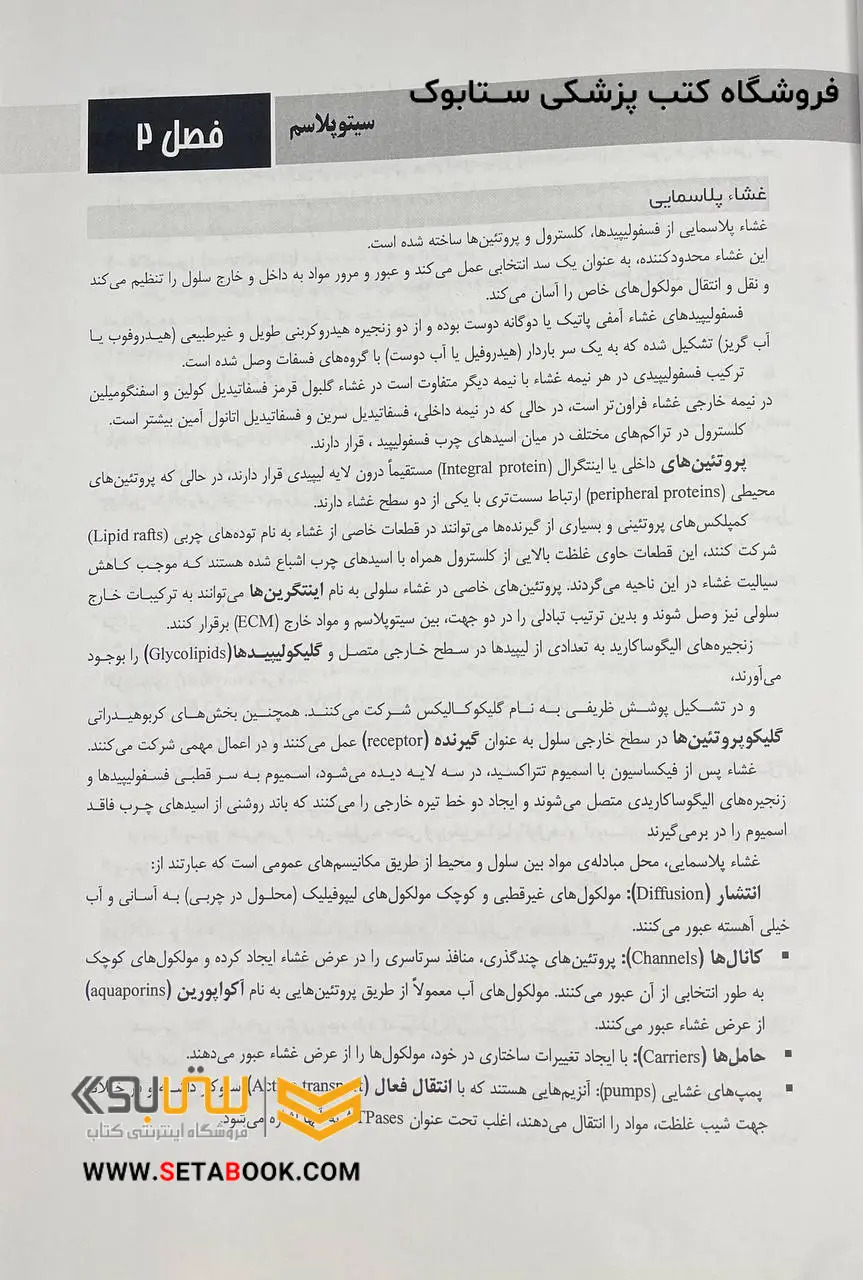 فروشگاه کتب پزشکی ستابوک
فصل ۲
سیتوپلاسم
غشاء پلاسمایی
غشاء پلاسمایی از فسفولیپیدها، کلسترول و پروتئین‌ها ساخته شده است.
این غشاء محدودکننده، به عنوان یک سد انتخابی عمل می‌کند و عبور و مرور مواد به داخل و خارج سلول را تنظیم می‌کند
و نقل و انتقال مولکول‌های خاص را آسان می‌کند.
فسفولیپیدهای غشاء آمفی پاتیک یا دوگانه دوست بوده و از دو زنجیره هیدروکربنی طویل و غیرطبیعی (هیدروفوب یا
آب گریز) تشکیل شده که به یک سر باردار (هیدروفیل یا آب دوست) با گروه‌های فسفات وصل شده است.
ترکیب فسفولیپیدی در هر نیمه غشاء با نیمه دیگر متفاوت است در غشاء گلبول قرمز فسفاتیدیل کولین و اسفنگومیلین
در نیمه خارجی غشاء فراوان‌تر است، در حالی که در نیمه داخلی، فسفاتیدیل سرین و فسفاتیدیل اتانول آمین بیشتر است.
کلسترول در تراکم‌های مختلف در میان اسیدهای چرب فسفولیپید ، قرار دارند.
پروتئین‌های داخلی یا اینتگرال (Integral protein) مستقیماً درون لایه لیپیدی قرار دارند، در حالی که پروتئین‌های
محیطی (peripheral proteins) ارتباط سست‌تری با یکی از دو سطح غشاء دارند.
کمپلکس‌های پروتئینی و بسیاری از گیرنده‌ها می‌توانند در قطعات خاصی از غشاء به نام توده‌های چربی (Lipid rafts)
شرکت کنند، این قطعات حاوی غلظت بالایی از کلسترول همراه با اسیدهای چرب اشباع شده هستند که موجب کاهش
سیالیت غشاء در این ناحیه می‌گردند. پروتئین‌های خاصی در غشاء سلولی به نام اینتگرین‌ها می‌توانند به ترکیبات خارج
سلولی نیز وصل شوند و بدین ترتیب تبادلی را در دو جهت، بین سیتوپلاسم و مواد خارج (ECM) برقرار کنند.
زنجیره‌های الیگوساکارید به تعدادی از لیپیدها در سطح خارجی متصل و گلیکولیپیدها(Glycolipids) را بوجود
می‌آورند،
و در تشکیل پوشش ظریفی به نام گلیکوکالیکس شرکت می‌کنند. همچنین بخش‌های کربوهیدراتی
گلیکوپروتئین‌ها در سطح خارجی سلول به عنوان گیرنده (receptor) عمل می‌کنند و در اعمال مهمی شرکت می‌کنند.
غشاء پس از فیکساسیون با اسمیوم تتراکسید، در سه لایه دیده می‌شود، اسمیوم به سر قطبی فسفولیپیدها و
زنجیره‌های الیگوساکاریدی متصل می‌شوند و ایجاد دو خط تیره خارجی را می‌کنند که باند روشنی از اسیدهای چرب فاقد
اسمیوم را در برمی‌گیرند
غشاء پلاسمایی، محل مبادله‌ی مواد بین سلول و محیط از طریق مکانیسم‌های عمومی است که عبارتند از:
انتشار (Diffusion): مولکول‌های غیرقطبی و کوچک مولکول‌های لیپوفیلیک (محلول در چربی) به آسانی و آب
خیلی آهسته عبور می‌کنند.
▪ کانال‌ها (Channels): پروتئین‌های چندگذری، منافذ سرتاسری را در عرض غشاء ایجاد کرده و مولکول‌های کوچک
به طور انتخابی از آن عبور می‌کنند. مولکول‌های آب معمولاً از طریق پروتئین‌هایی به نام آکواپورین (aquaporins)
از عرض غشاء عبور می‌کنند.
▪ حامل‌ها (Carriers): با ایجاد تغییرات ساختاری در خود، مولکول‌ها را از عرض غشاء عبور می‌دهند.
▪ پمپ‌های غشایی (pumps): آنزیم‌هایی هستند که با انتقال فعال (Active transport)
جهت شیب غلظت، مواد را انتقال می‌دهند، اغلب تحت عنوان ATPases به آنها اشاره می‌شود.
ستابوک
فروشگاه اینترنتی کتاب
WWW.SETABOOK.COM